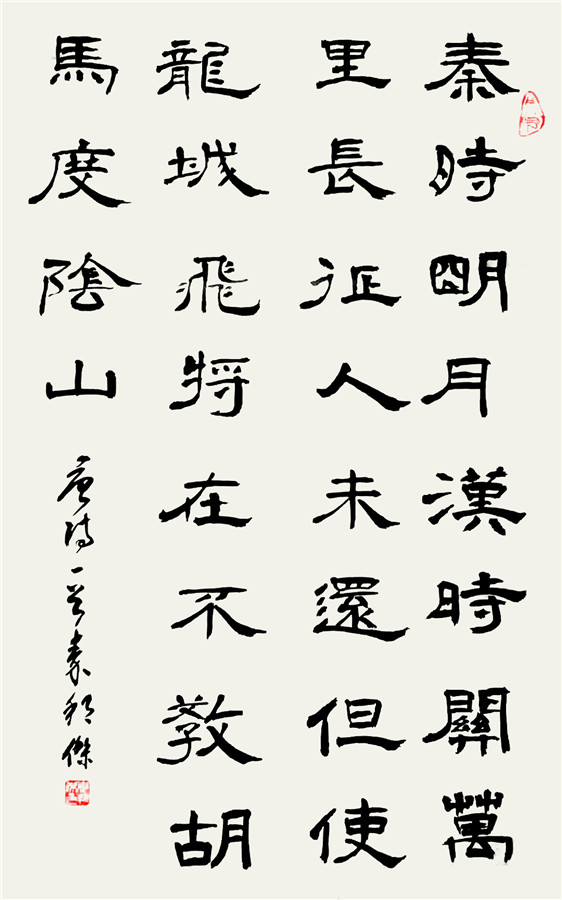 秦時明月漢時關萬
里長征人未還但使
龍城飛將在不教胡
馬度陰山
唐詩一首
傑